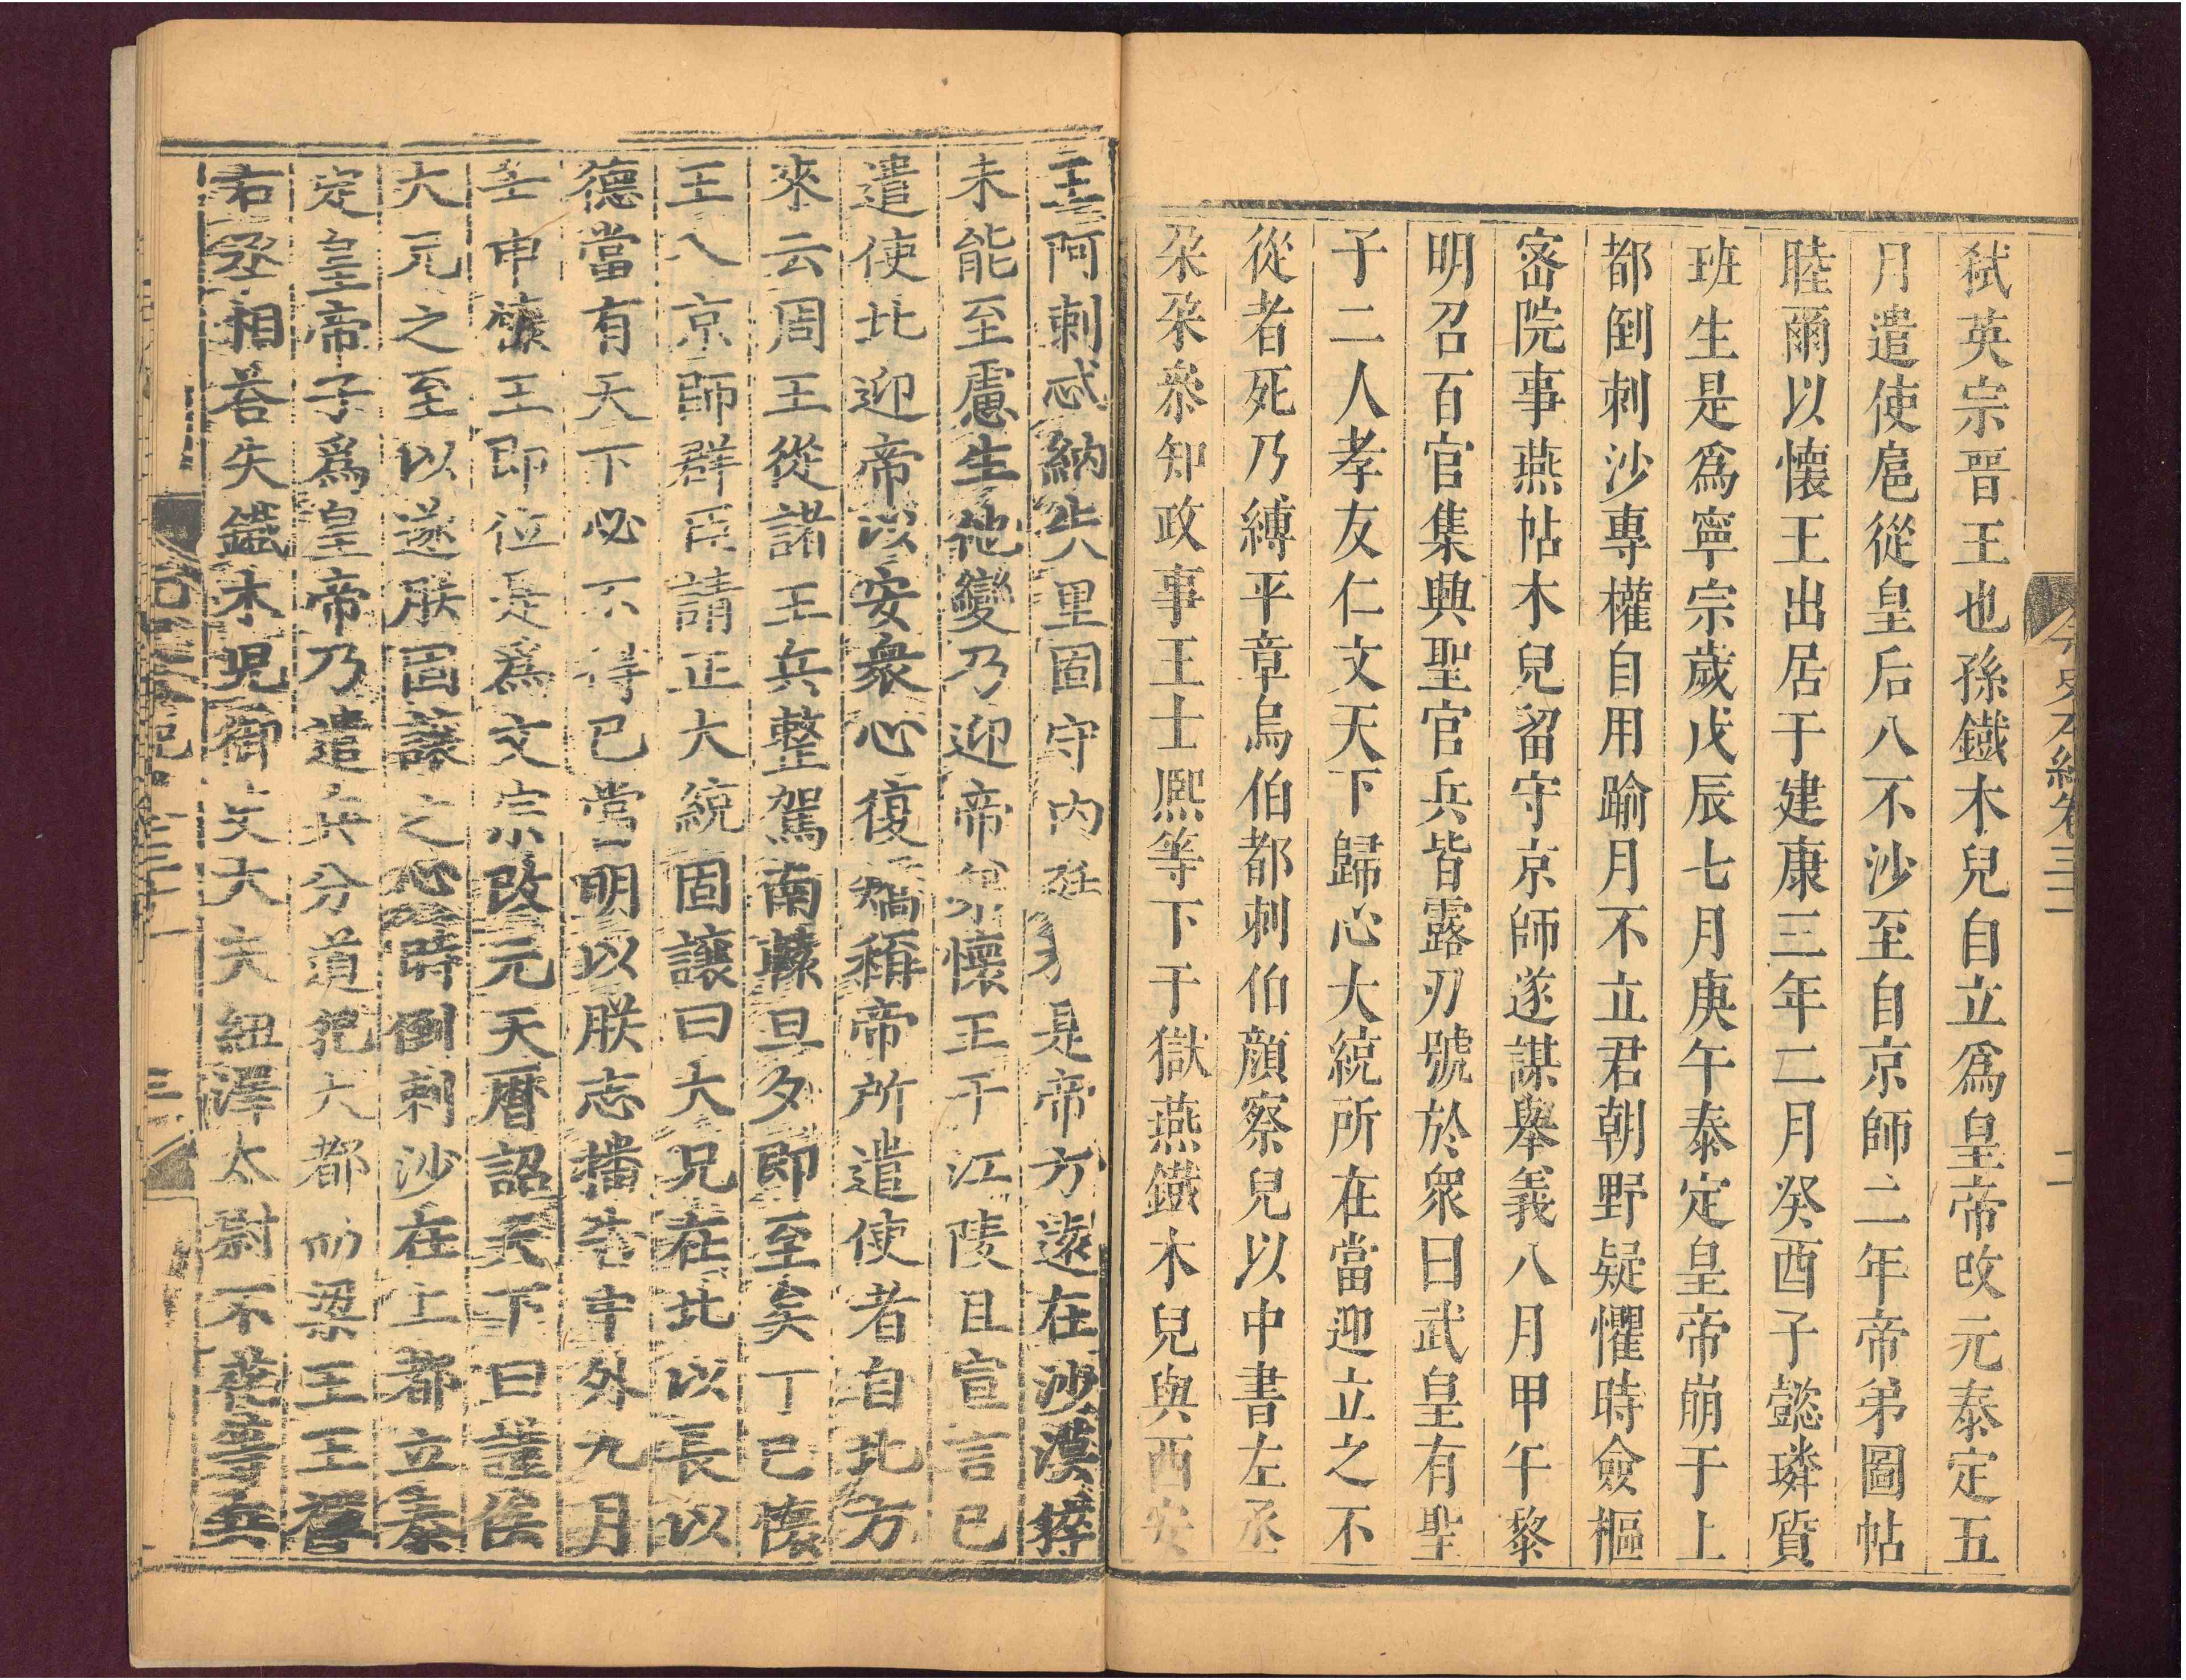 弑英宗晉王也孫鐵木兒自立爲皇帝改元泰定五
月遣使扈從皇后八不沙至自京師二年帝弟圖帖
睦爾以懷王出居于建康三年二月癸酉子懿璘質
班生是爲寧宗歲戊辰七月庚午泰定皇帝崩于上
都倒刺沙專權自用踰月不立君朝野疑懼時僉樞
密院事燕帖木兒留守京師遂謀舉義八月甲午黎
明召百官集興聖官兵皆露刃號於衆曰武皇有聖
子二人孝友仁文天下歸心大統所在當迎立之不
從者死乃縛平章烏伯都刺伯顔察兒以中書左丞
朵朵叅知政事王士熈等下于獄燕鐵木兒與西安
王阿剌忒納失里固守内廷 是帝方遠在沙漠猝
未能至慮生他變乃迎帝 懷王于江陵且宣言已
遣使北迎帝以安衆心復矯稱帝所遣使者自北方
來云周王從諸王兵整駕南轅旦夕即至矣丁巳懷
王入京師群臣請正大統固讓曰大兄在北以長以
德當有天下必不得已當明以朕志播告中外九月
壬申懷王即位是爲文宗改元天曆詔天下曰謹俟
大元之至以遂朕固讓之心時倒剌沙在上都立泰
定皇帝子爲皇帝乃遣兵分道犯大都 梁王王禪
右丞相荅失鐵木兒御史大夫紐澤太尉不花等兵
元史本紀卷三十一
二
三